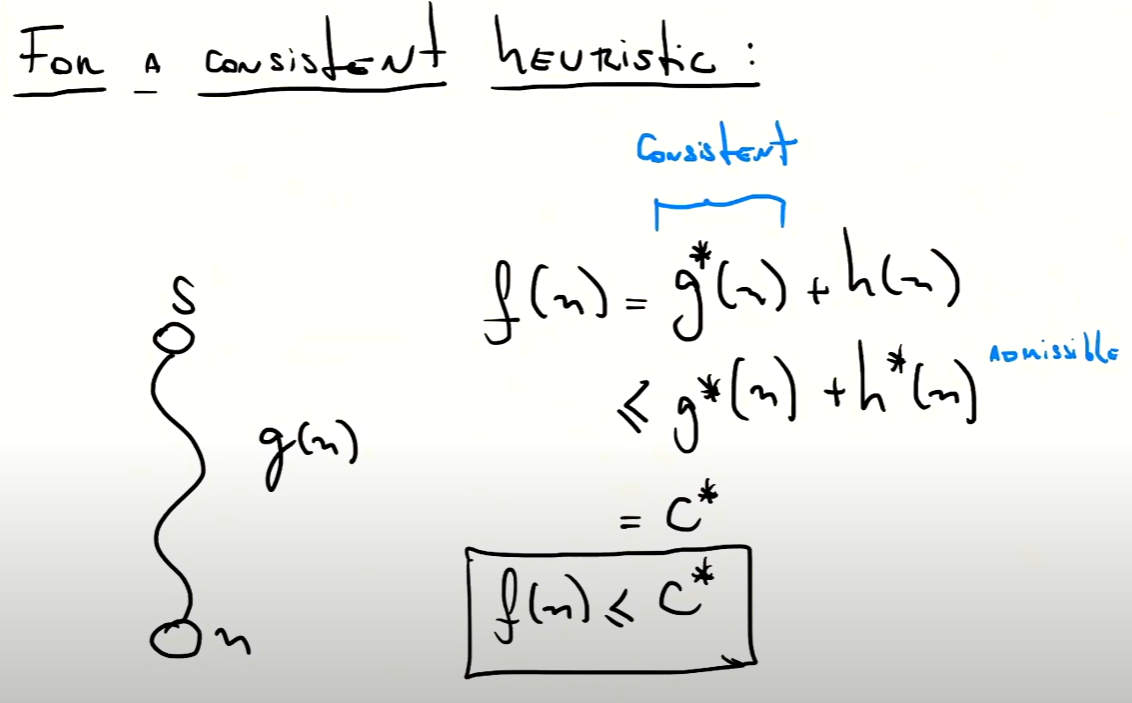 For a consistent heuristic:
consistent
f(n) = g*(n) + h(n)
≤ g*(n) + h*(n) admissible
= C*
f(n) ≤ C*
S
g(n)
n